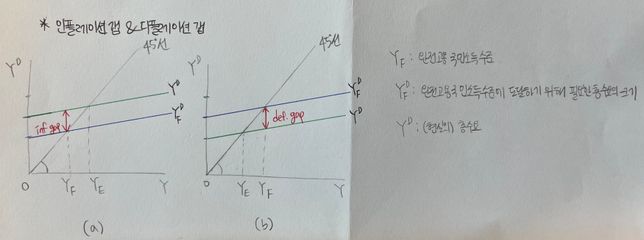 * 인플레이션 갭 & 디플레이션 갭
Y^D
45°선
Y^D
Y_F^D
inf. gap
0
Y_F
Y_E
Y
(a)
Y^D
45°선
Y_F^D
Y^D
def. gap
0
Y_E
Y_F
Y
(b)
Y_F : 완전고용 국민소득수준
Y_F^D : 완전고용국민소득수준에 도달하기 위해 필요한 총수요의 크기
Y^D : (현실의) 총수요